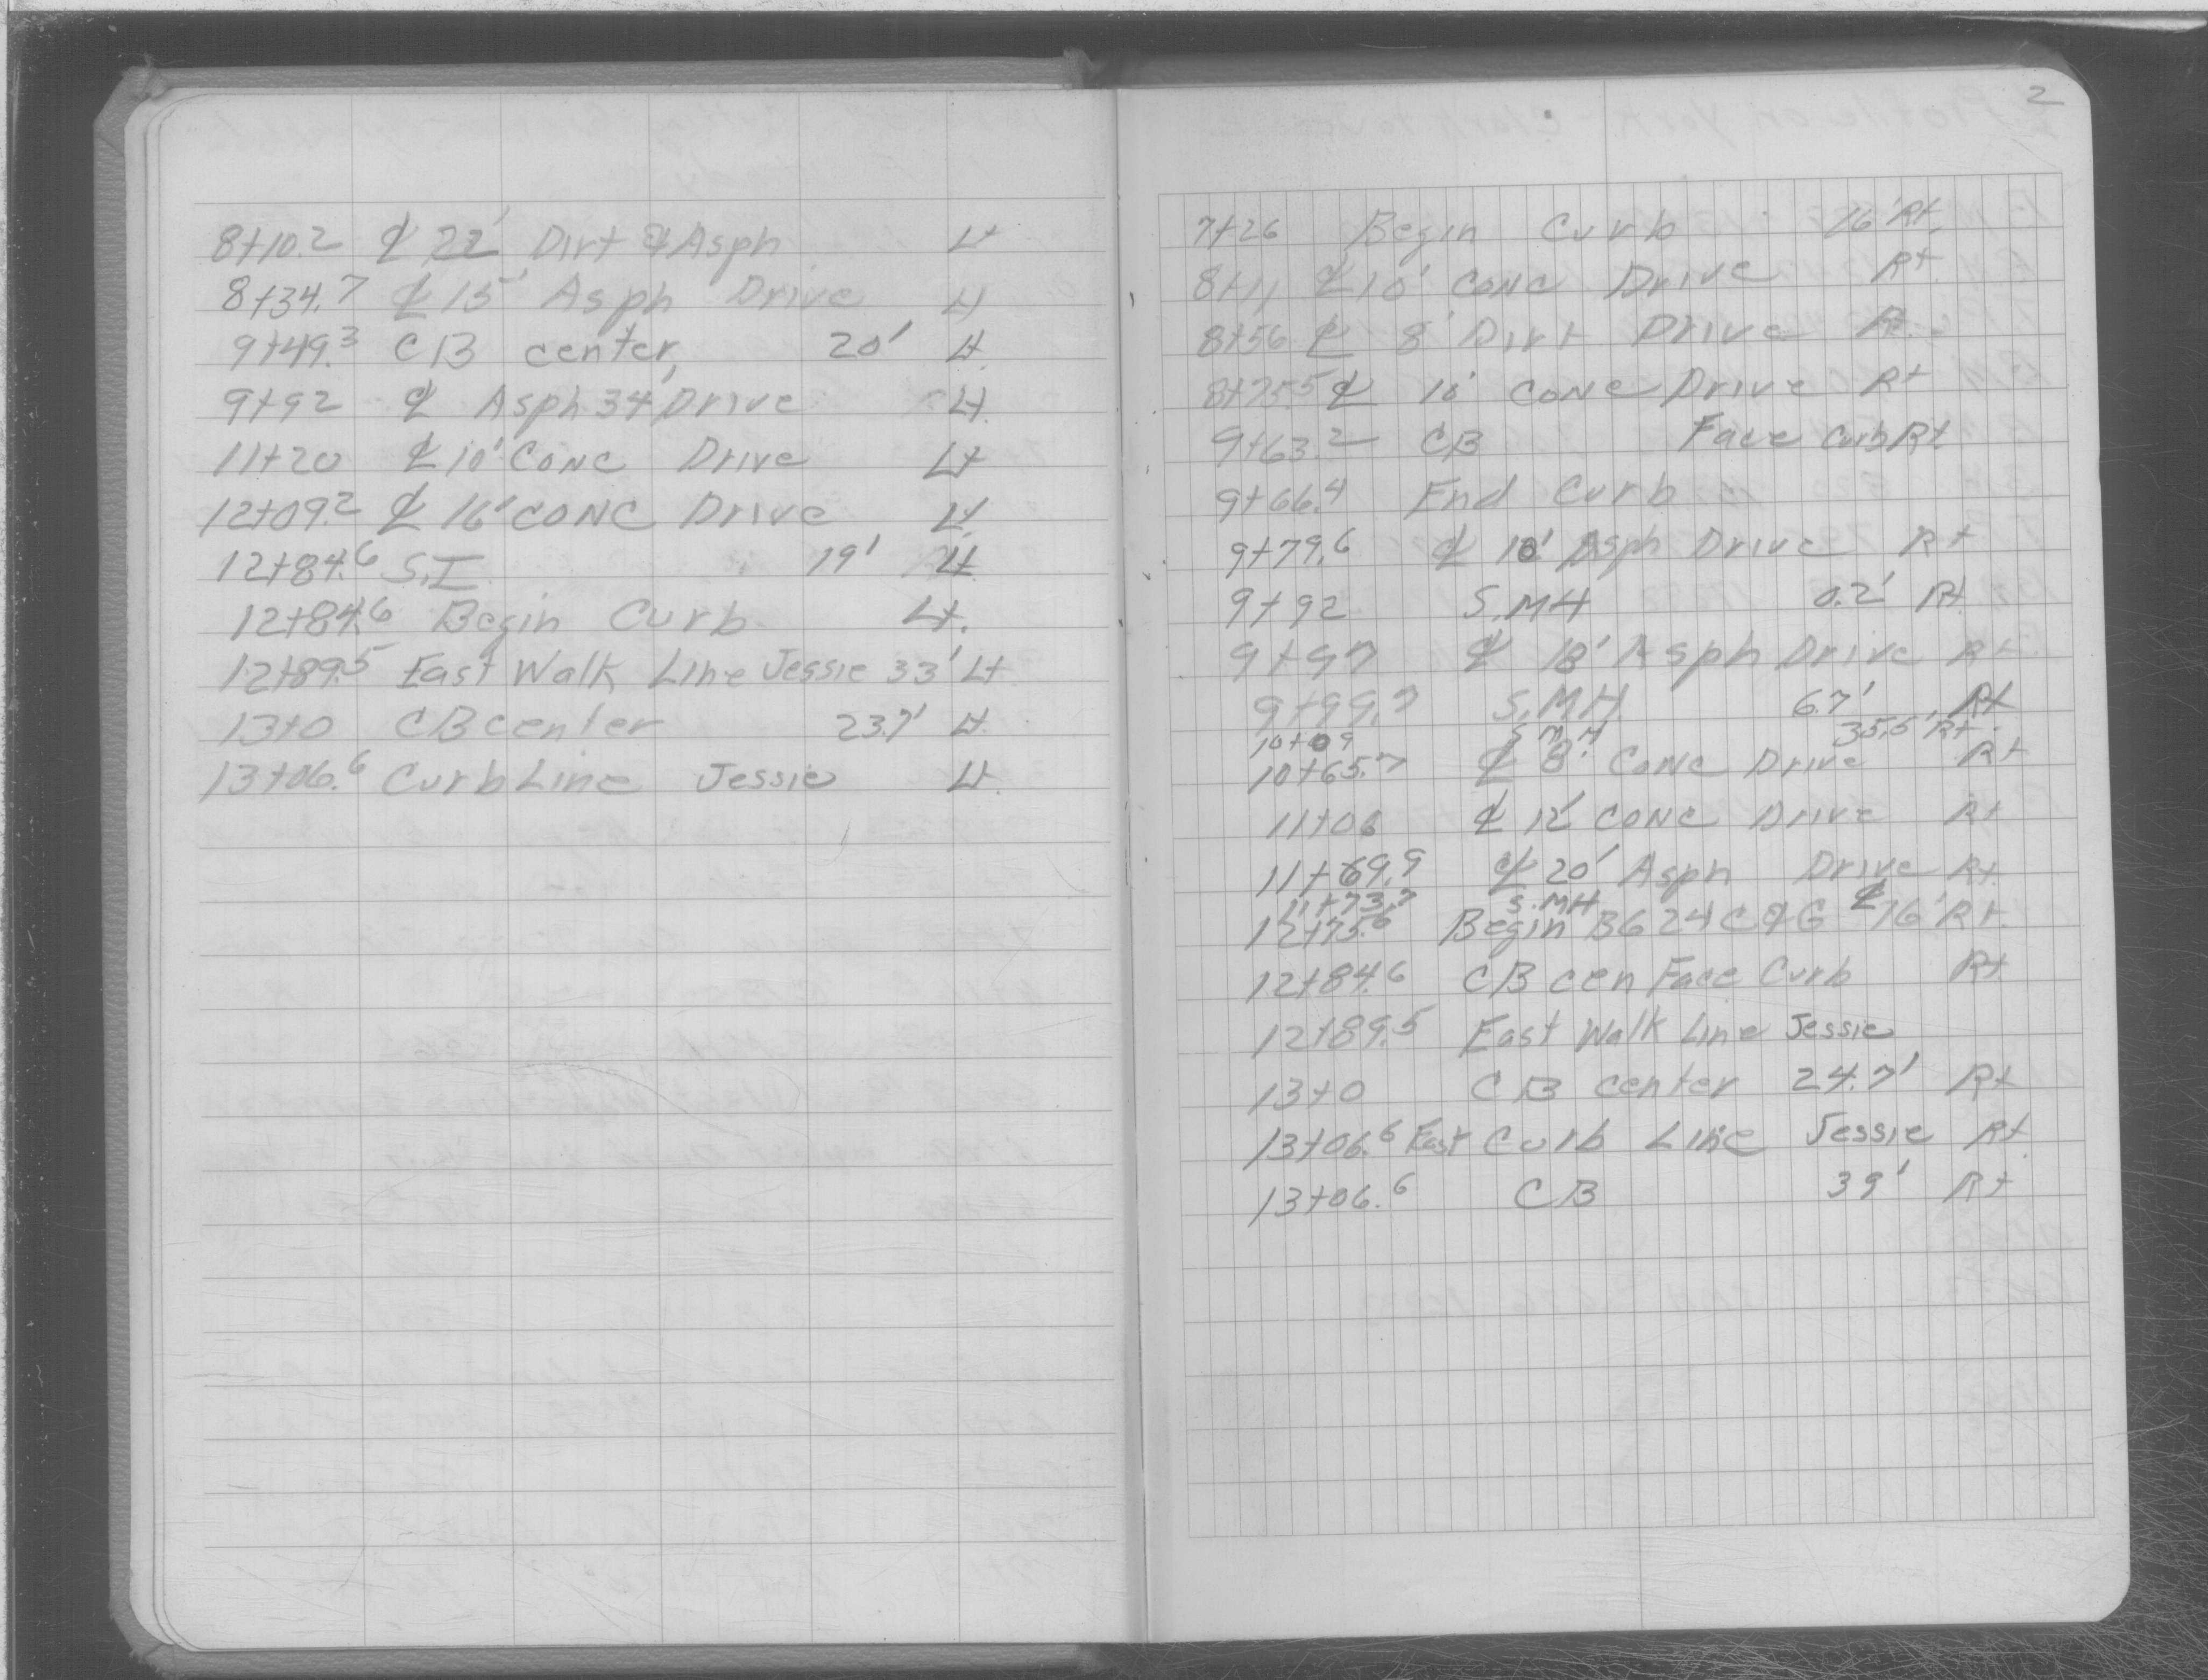 8+10.2 ℄ 22' Dirt & Asph Lt
8+34.7 ℄ 15' Asph Drive Lt
9+49.3 CB center, 20' Lt
9+92 ℄ Asph 34' Drive Lt.
11+20 ℄ 10' CONC Drive Lt
12+09.2 ℄ 16' CONC Drive Lt
12+84.6 S.I 19' Lt
12+84.6 Begin Curb Lt.
12+89.5 East Walk Line Jessie 33' Lt
13+0 CB center 23.7' Lt
13+06.6 Curb Line Jessie Lt.
2
7+26 Begin Curb 16' Rt.
8+11 ℄ 10' CONC Drive Rt
8+56 ℄ 8' Dirt Drive Rt.
8+75.5 ℄ 10' CONC Drive Rt
9+63.2 CB Face Curb Rt
9+66.4 End Curb
9+79.6 ℄ 18' Asph Drive Rt
9+92 S.MH 0.2' Rt
9+97 ℄ 18' Asph Drive Rt
9+99.7 S.MH 6.7' Rt
10+09 S.M.H 35.5' Rt.
10+65.7 ℄ 8' CONC Drive Rt
11+06 ℄ 12' CONC Drive Rt
11+69.9 ℄ 20' Asph Drive Rt.
11+73.7 S.MH ℄
12+75.6 Begin B624 C&G 16' Rt.
12+84.6 CB cen Face Curb Rt
12+89.5 East Walk Line Jessie
13+0 CB center 24.7' Rt
13+06.6 East Curb Line Jessie Rt
13+06.6 CB 39' Rt